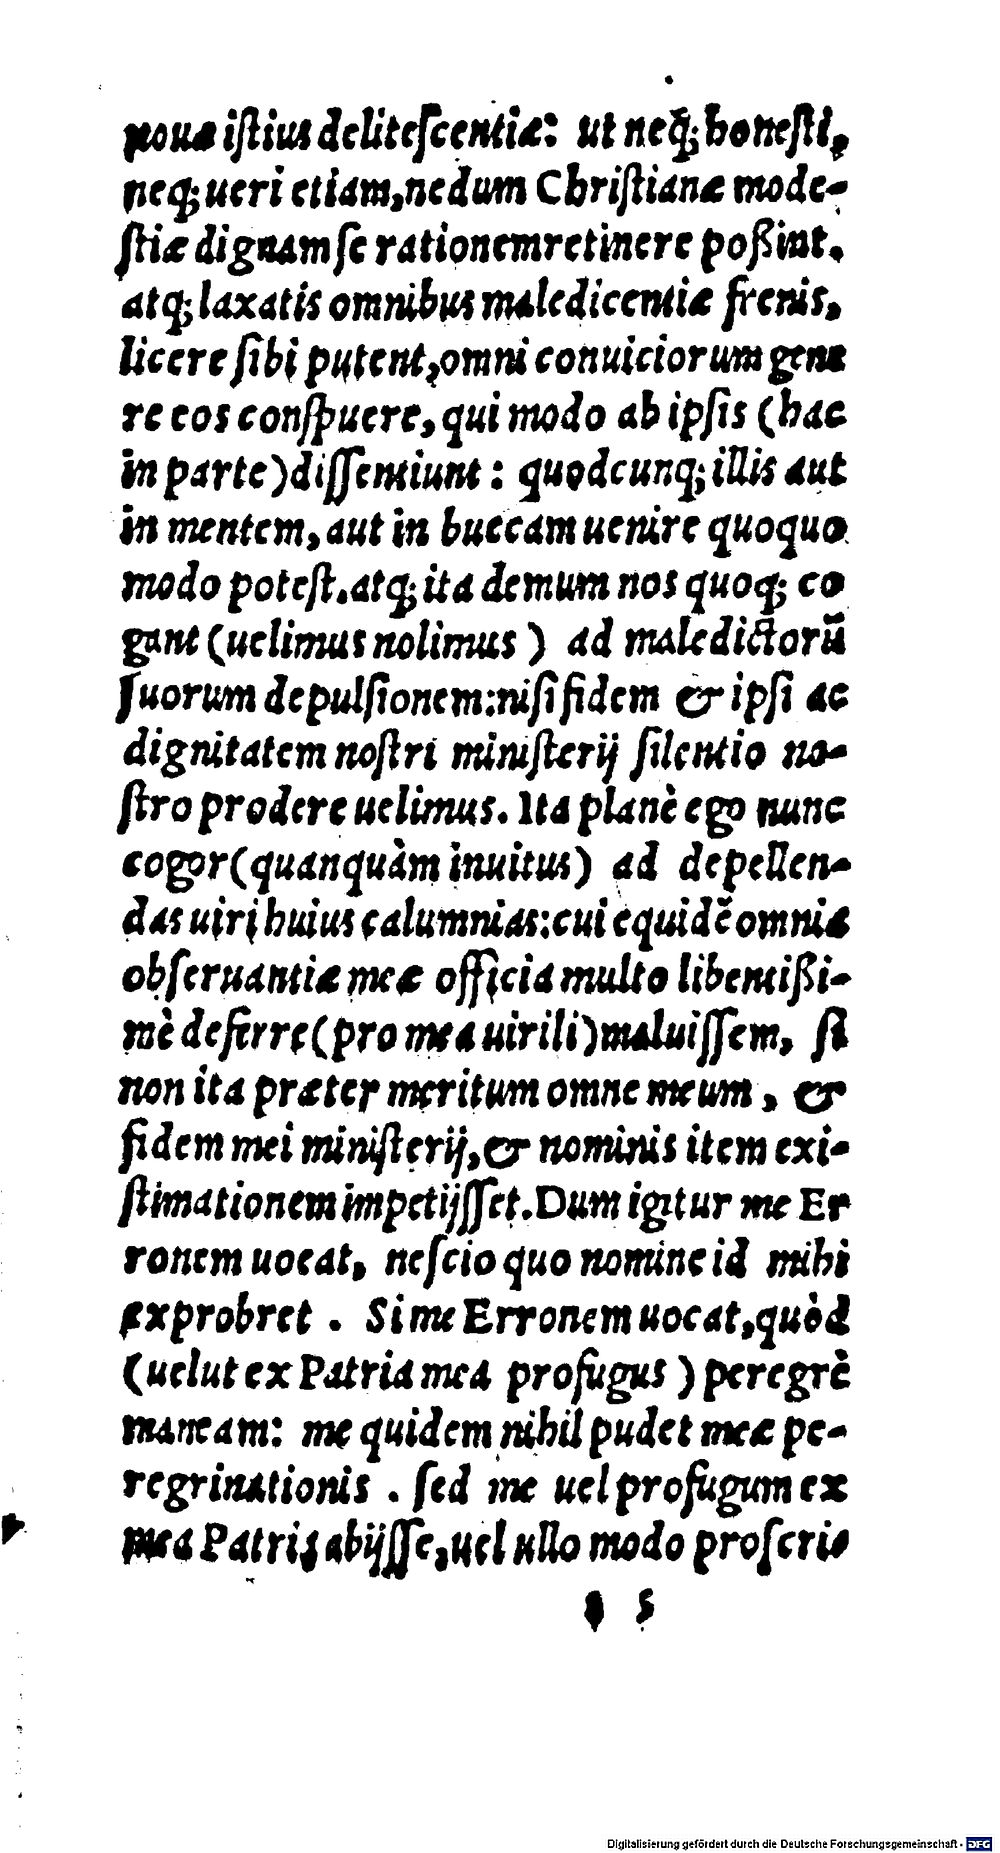 nouæ iſtius deliteſcentiæ: ut neq; honeſti,
neq; ueri etiam, nedum Chriſtianæ mode-
ſtiæ dignam ſe rationem retinere poßint.
atq; laxatis omnibus maledicentiæ frenis,
licere ſibi putent, omni conuiciorum gene
re eos conſpuere, qui modo ab ipſis (hac
in parte) diſſentiunt: quodcunq; illis aut
in mentem, aut in buccam uenire quoquo
modo poteſt. atq; ita demum nos quoq; co
gant (uelimus nolimus) ad maledictorū
ſuorum depulſionem: niſi fidem & ipſi ac
dignitatem noſtri miniſterij ſilentio no-
ſtro prodere uelimus. Ita planè ego nunc
cogor (quanquàm inuitus) ad depellen-
das uiri huius calumnias: cui equidē omnia
obſeruantiæ meæ officia multo libentißi-
mè deferre (pro mea uirili) maluiſſem, ſi
non ita præter meritum omne meum, &
fidem mei miniſterij, & nominis item exi-
ſtimationem impetijſſet. Dum igitur me Er
ronem uocat, neſcio quo nomine id mihi
exprobret. Si me Erronem uocat, quòd
(uelut ex Patria mea profugus) peregrè
maneam: me quidem nihil pudet meæ pe-
regrinationis. ſed me uel profugum ex
mea Patria abijſſe, uel ullo modo proſcrio
5
Digitalisierung gefördert durch die Deutsche Forschungsgemeinschaft - DFG